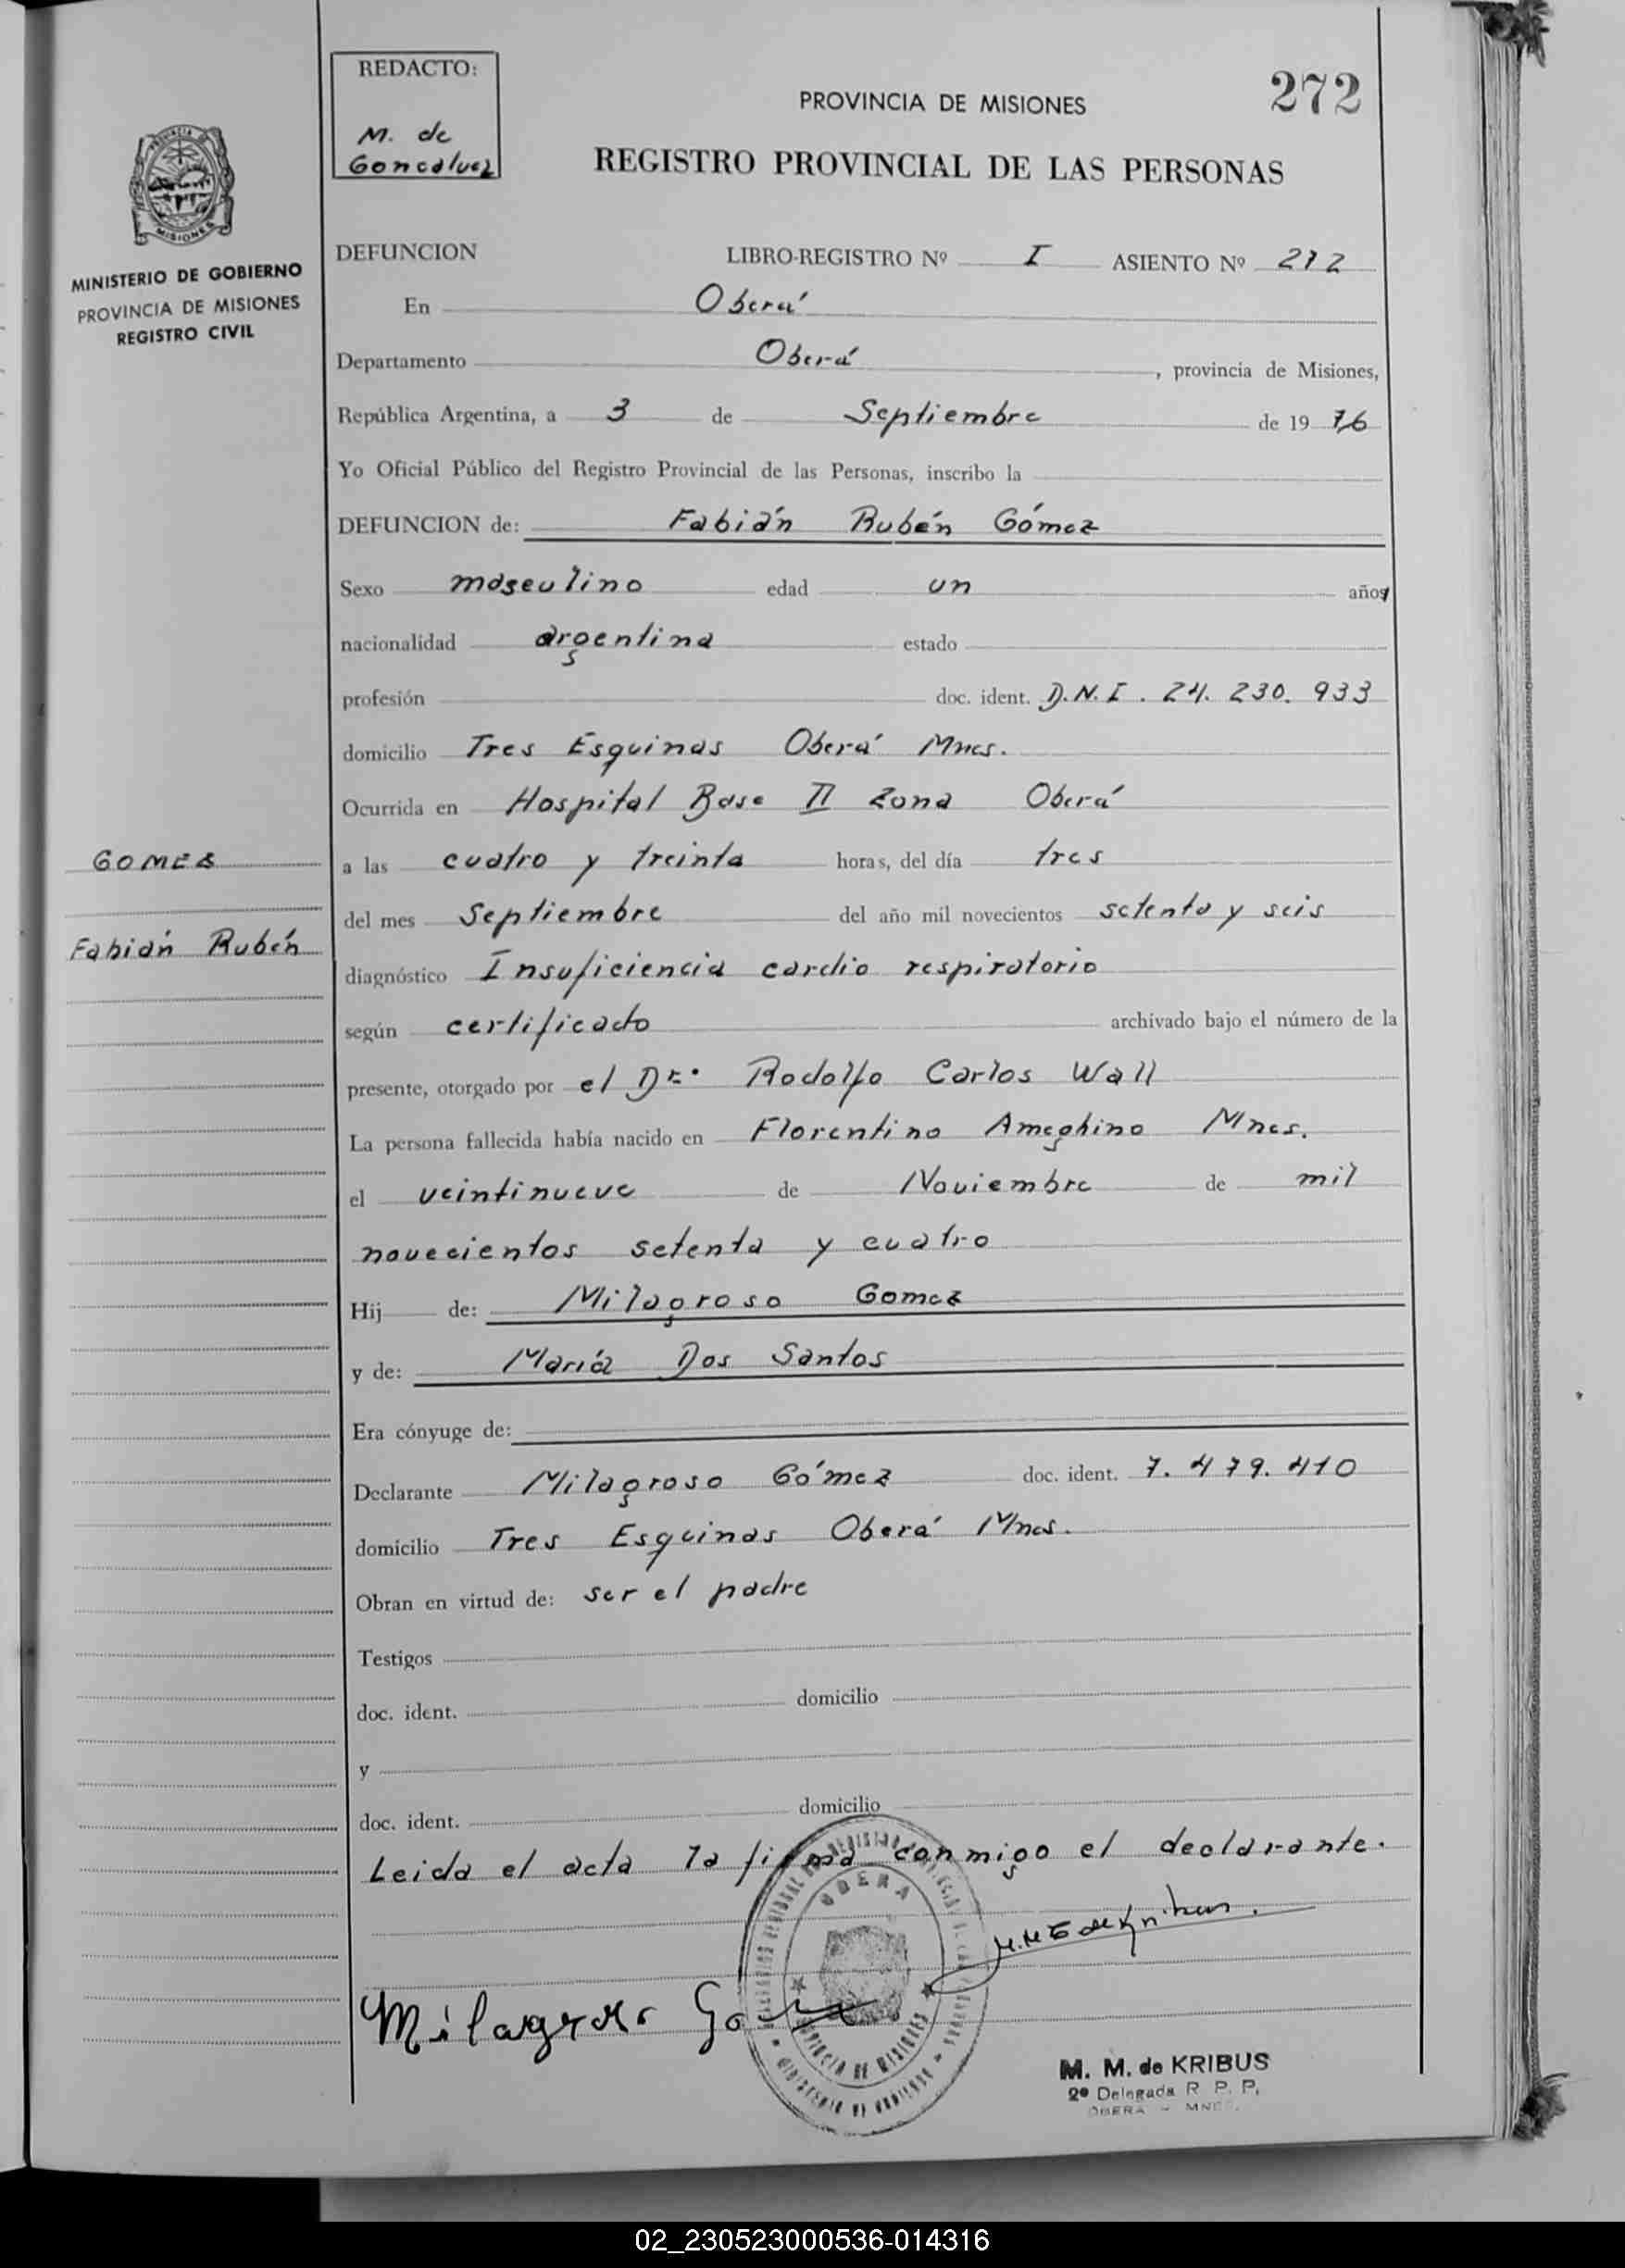 REDACTO:
M. de
Goncalvez
PROVINCIA DE MISIONES
272
REGISTRO PROVINCIAL DE LAS PERSONAS
MISIONES
MINISTERIO DE GOBIERNO
PROVINCIA DE MISIONES
REGISTRO CIVIL
DEFUNCION LIBRO-REGISTRO Nº I ASIENTO Nº 272
En Oberá
Departamento Oberá, provincia de Misiones,
República Argentina, a 3 de Septiembre de 1976
Yo Oficial Público del Registro Provincial de las Personas, inscribo la
DEFUNCION de: Fabián Rubén Gómez
Sexo masculino edad un años
nacionalidad argentina estado
profesión doc. ident. D.N.I. 24.230.933
domicilio Tres Esquinas Oberá Mnes.
Ocurrida en Hospital Base II Zona Oberá
GOMEZ
a las cuatro y treinta horas, del día tres
del mes Septiembre del año mil novecientos setenta y seis
Fabián Rubén
diagnóstico Insuficiencia cardio respiratorio
según certificado archivado bajo el número de la
presente, otorgado por el Dr. Rodolfo Carlos Wall
La persona fallecida había nacido en Florentino Ameghino Mnes.
el veintinueve de Noviembre de mil
novecientos setenta y cuatro
Hij de: Milagroso Gomez
y de: María Dos Santos
Era cónyuge de:
Declarante Milagroso Gómez doc. ident. 7.479.410
domicilio Tres Esquinas Oberá Mnes.
Obran en virtud de: ser el padre
Testigos
doc. ident. domicilio
y
doc. ident. domicilio
Leida el acta la firma conmigo el declarante.
OBERA
PROVINCIA DE MISIONES
M. M. de KRIBUS
2º Delegada R. P. P.
OBERA - MNES.
02_230523000536-014316